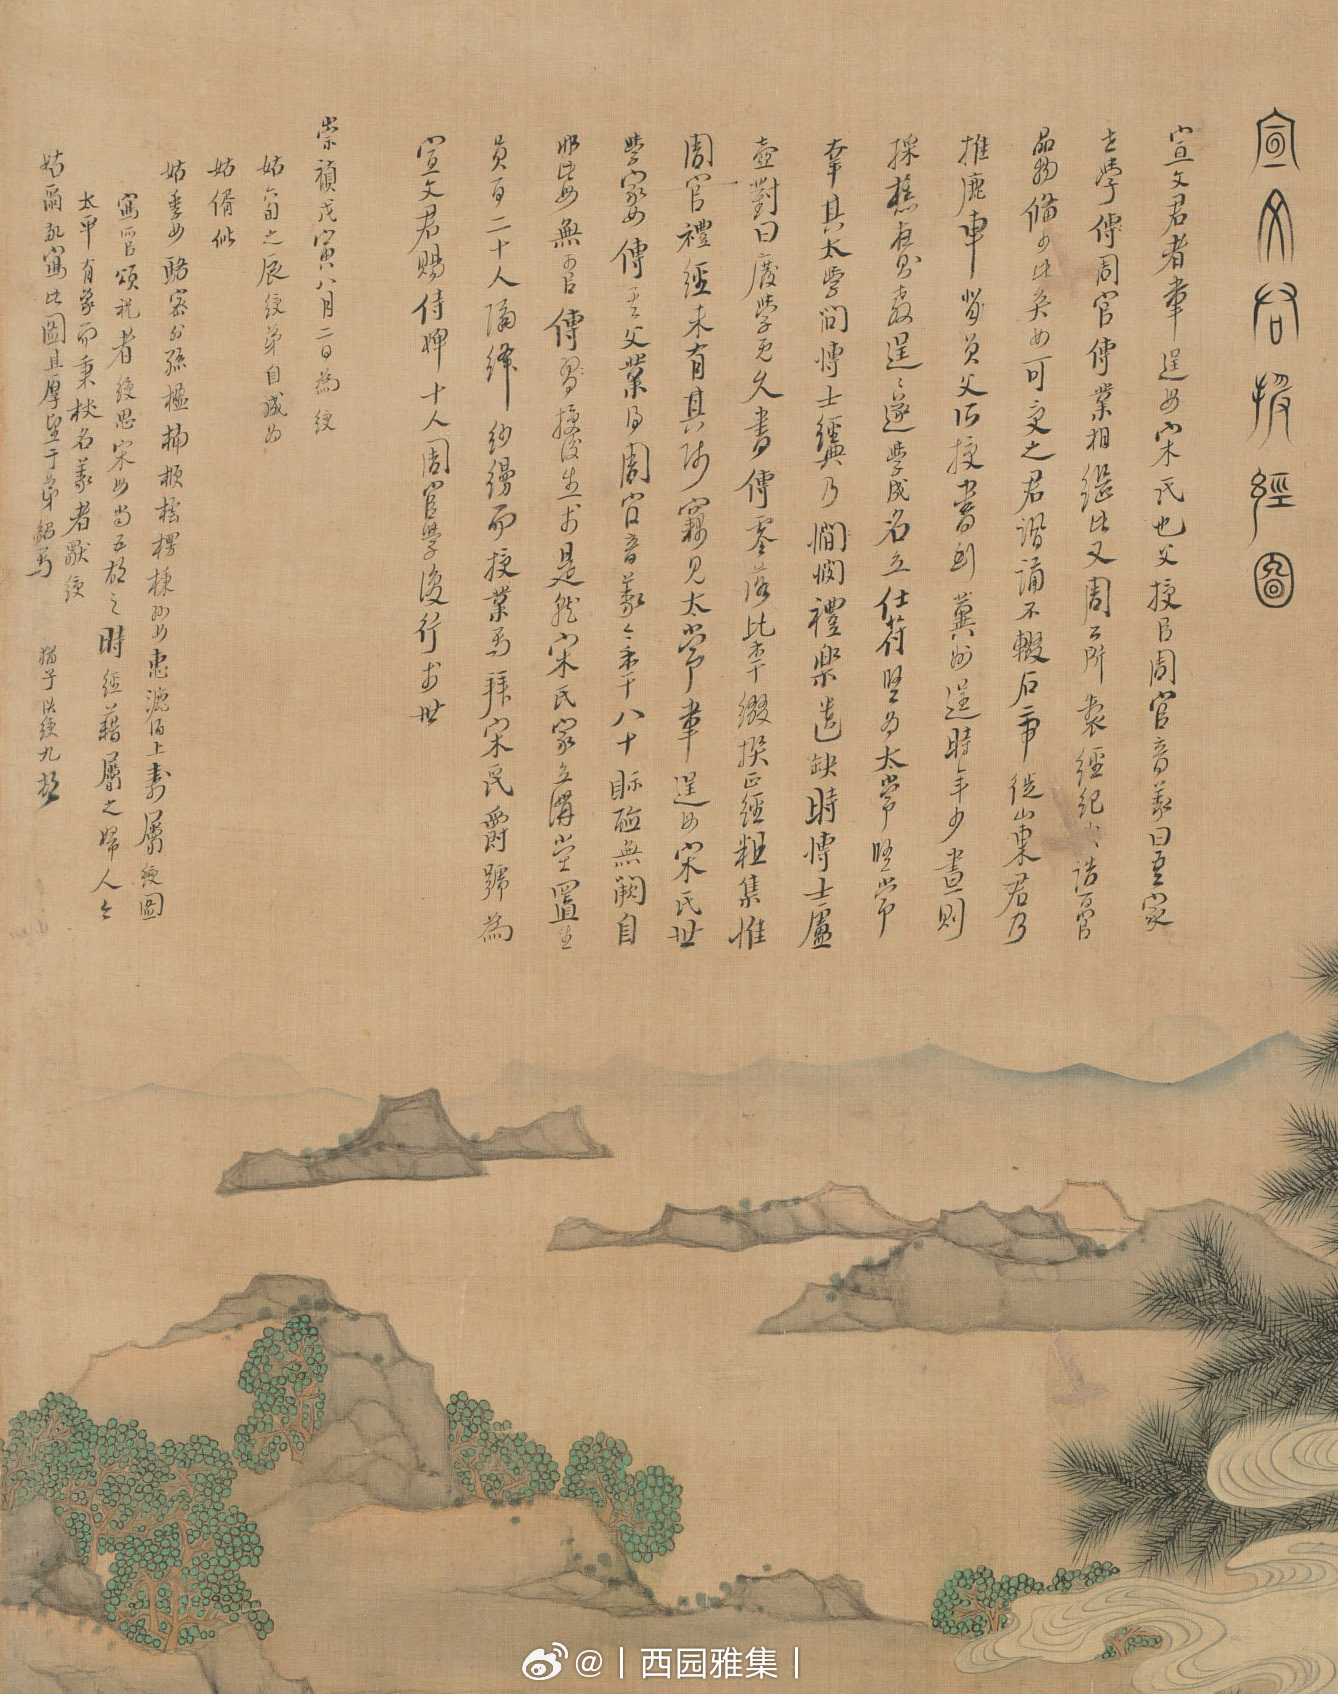 宣文君授經圖
宣文君者韋逞母宋氏也父授以周官音義曰吾家
世學傳周官傳業相繼此又周公所製經紀典誥百官
品物備於此矣汝可受之君諷誦不輟石季徙山東君乃
推鹿車背負父所授書到冀州逞時年少晝則
採樵夜則教逞遂學成名立仕苻堅為太常堅常
幸其太學問博士經典乃憫禮樂遺缺時博士盧
壺對曰廢學既久書傳零落比年綴撰正經粗集惟
周官禮經未有其師竊見太常韋逞母宋氏世
學家女傳其父業得周官音義今年八十視聽無闕自
非此母無可以傳習後生於是就宋氏家立講堂置生
員百二十人隔絳紗幔而授業焉拜宋氏爵號為
宣文君賜侍婢十人周官學復行於世
崇禎戊寅八月二日為綬
姑六旬之辰綬弟自誠為
姑
姑
寫以頌祝者綬思宋母當五胡之時經籍屬之婦人今
太平有象而秉
姑爾敬寫此圖且厚望于弟
猶子洪綬九頓
@丨西园雅集丨